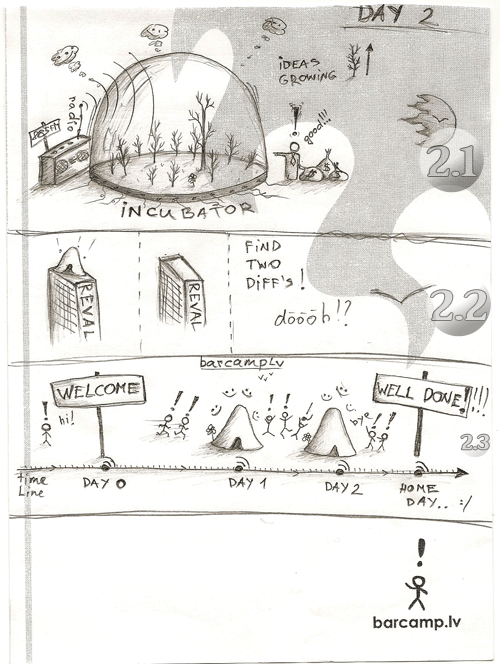 DAY 2
iDEAS
GROWiNG
radio
good!!!
$
$
2.1
iNCUBATOR
REVAL
REVAL
FiND
TWO
DiFF'S!
dōōōh!?
2.2
barcampLv
WELCOME
WELL DONE!!!!
hi!
bye
2.3
time
Line
DAY 0
DAY 1
DAY 2
HOME
DAY.. :/
!
barcamp.lv